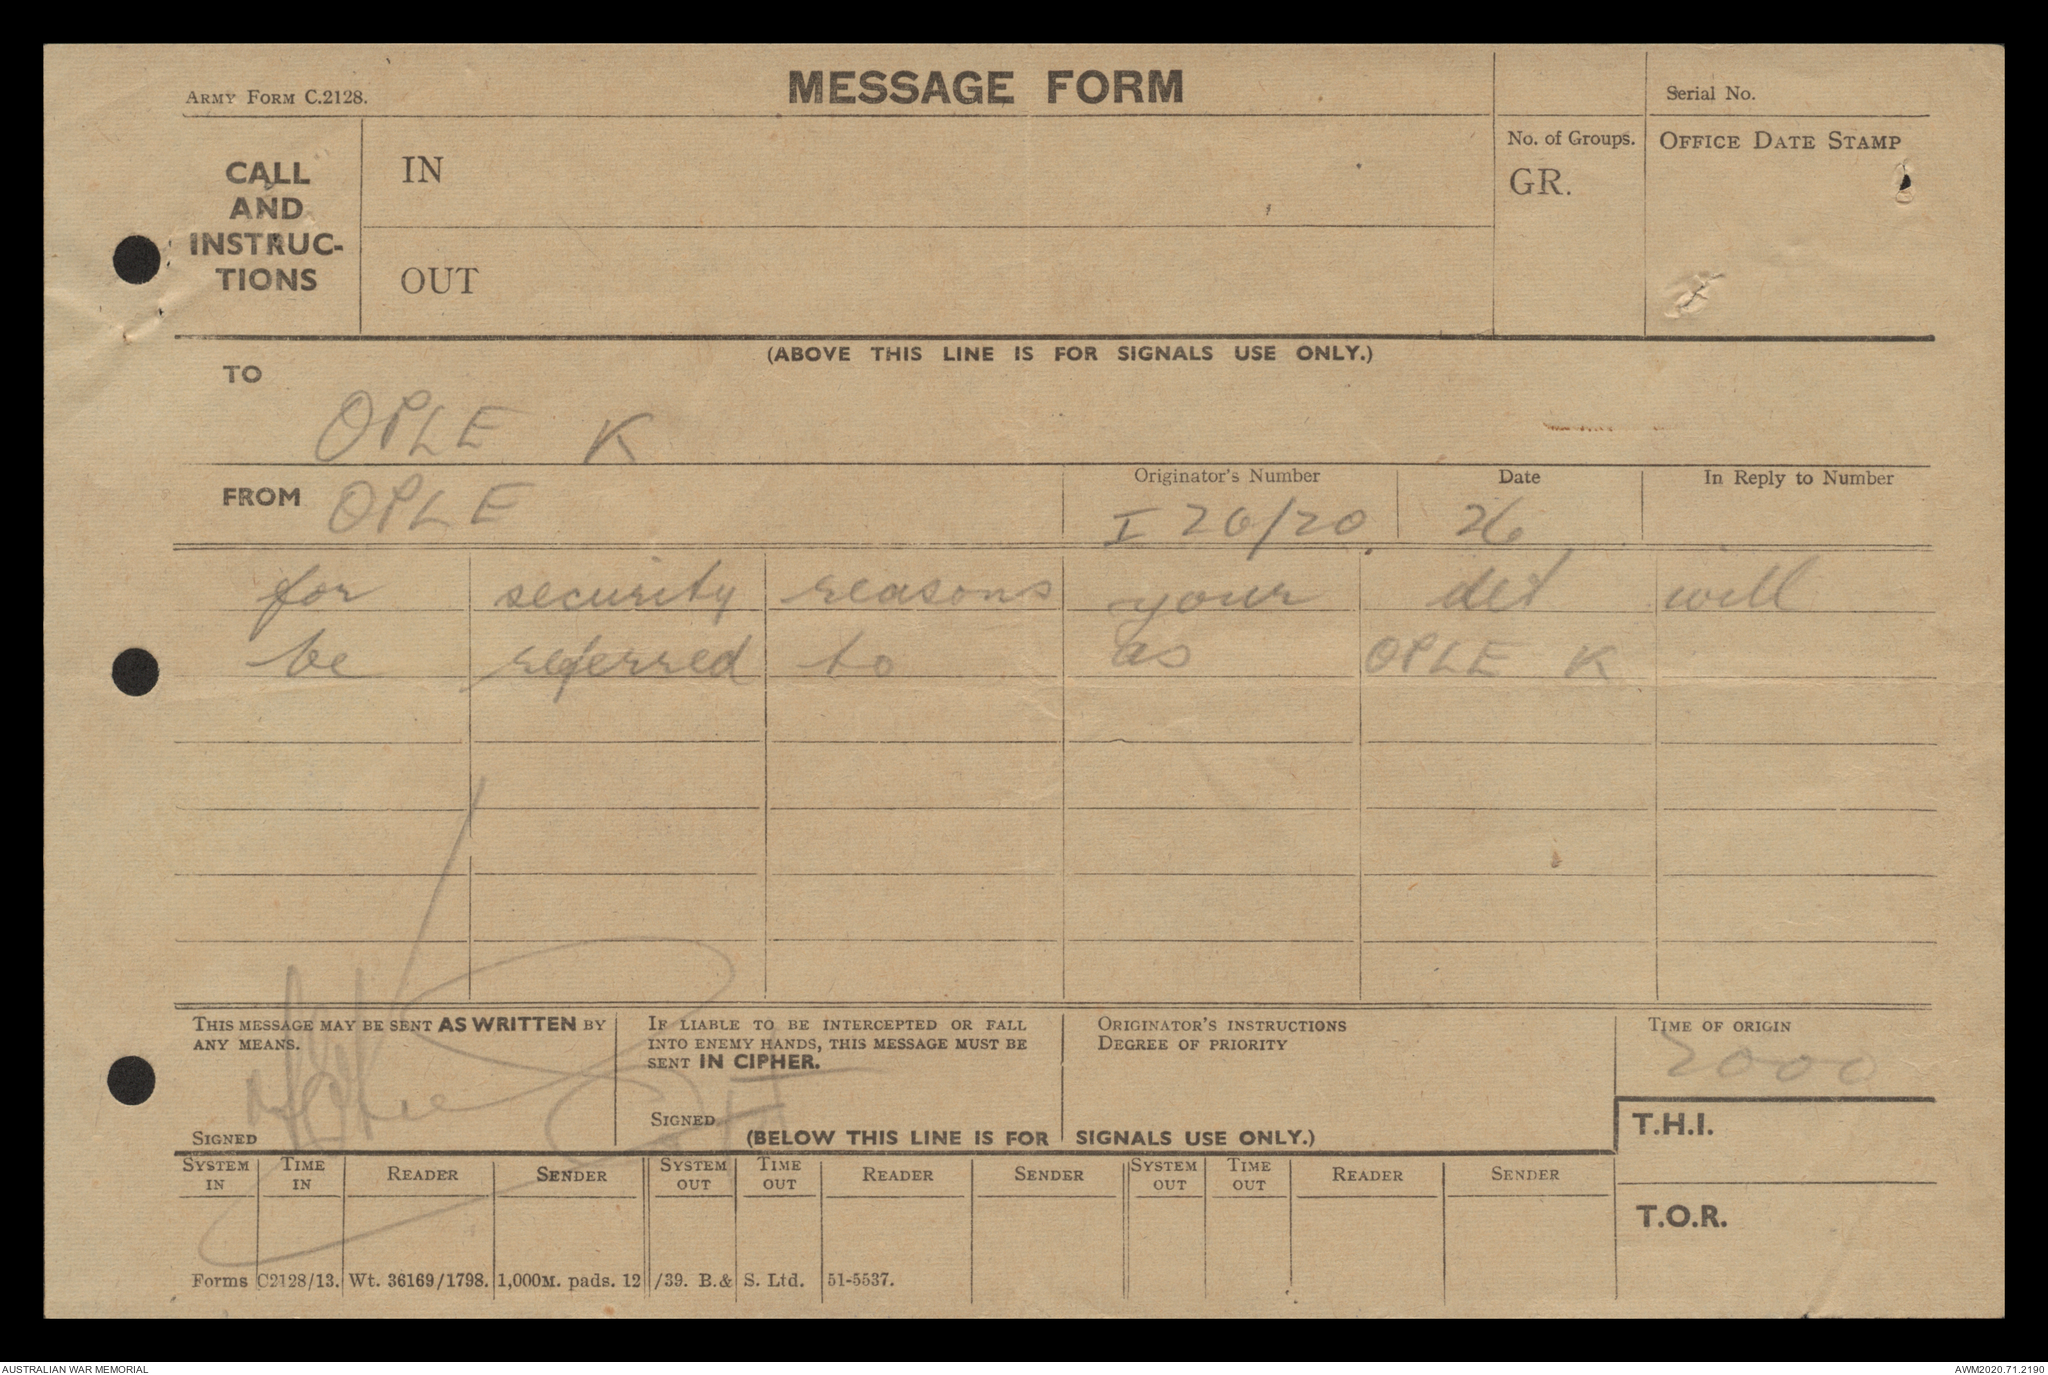 ARMY FORM C.2128.
MESSAGE FORM
Serial No.
CALL
AND
INSTRUC-
TIONS
IN
OUT
No. of Groups.
GR.
OFFICE DATE STAMP
(ABOVE THIS LINE IS FOR SIGNALS USE ONLY.)
TO
OPLE K
FROM OPLE
Originator's Number
I 26/20.
Date
26
In Reply to Number
for security reasons your det will
be referred to as OPLE K
THIS MESSAGE MAY BE SENT AS WRITTEN BY
ANY MEANS.
SIGNED
IF LIABLE TO BE INTERCEPTED OR FALL
INTO ENEMY HANDS, THIS MESSAGE MUST BE
SENT IN CIPHER.
SIGNED
ORIGINATOR'S INSTRUCTIONS
DEGREE OF PRIORITY
TIME OF ORIGIN
2000
(BELOW THIS LINE IS FOR SIGNALS USE ONLY.)
T.H.I.
T.O.R.
SYSTEM IN TIME IN READER SENDER SYSTEM OUT TIME OUT READER SENDER SYSTEM OUT TIME OUT READER SENDER
Forms C2128/13. Wt. 36169/1798. 1,000M. pads. 12/39. B.& S. Ltd. 51-5537.
AUSTRALIAN WAR MEMORIAL
AWM2020.71.2190